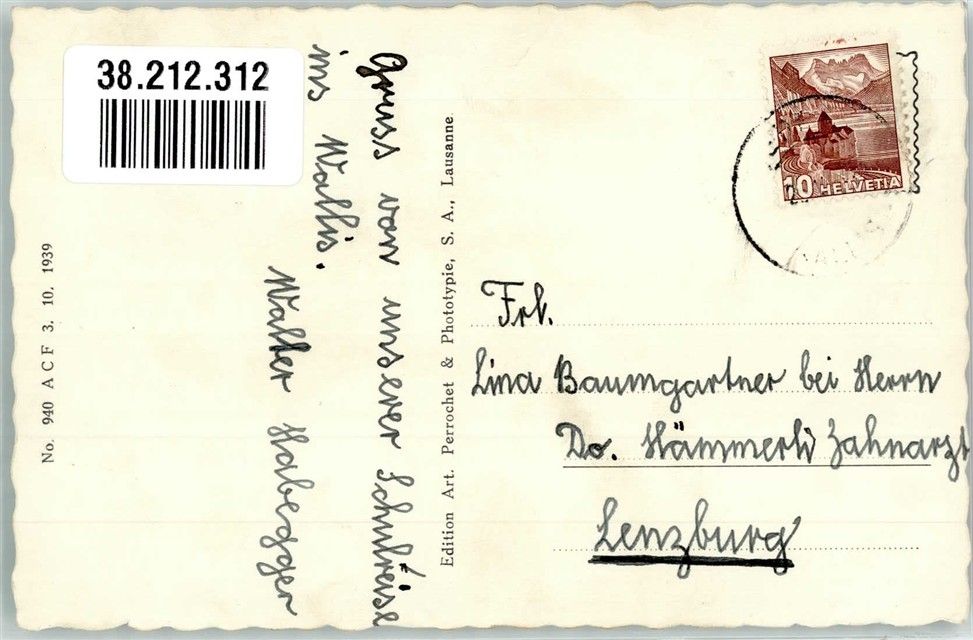 38.212.312
Gruss von unserer Schulreise
ins Wallis.
Walter Habegger
No. 940 A C F 3. 10. 1939
Edition Art. Perrochet & Phototypie, S. A., Lausanne
10 HELVETIA
Frl.
Lina Baumgartner bei Herrn
Do. Hämmerli Zahnarzt
Lenzburg